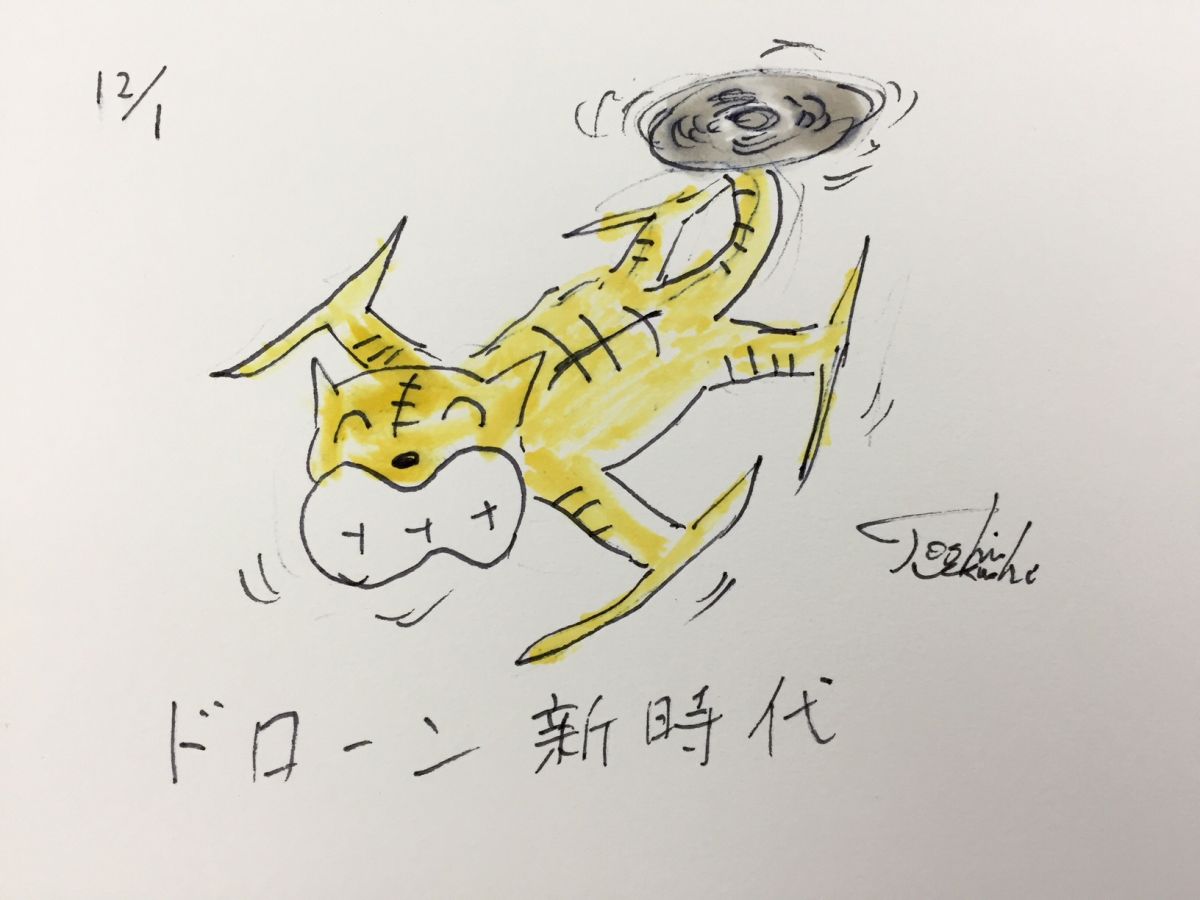 12/1
ドローン新時代